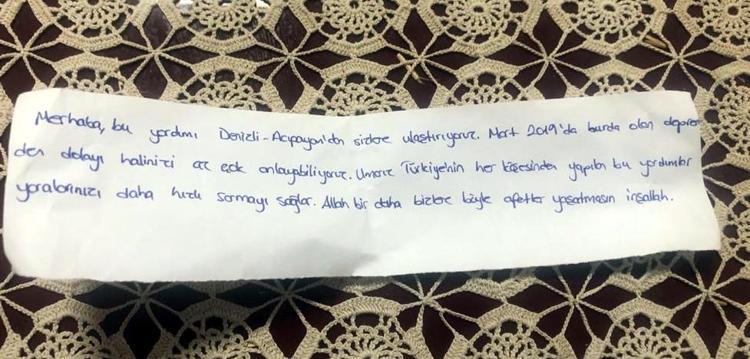 Merhaba, bu yardımı Denizli-Acıpayam'dan sizlere ulaştırıyoruz. Mart 2019'da burda olan deprem
den dolayı halinizi az çok anlayabiliyoruz. Umarız Türkiye'nin her köşesinden yapılan bu yardımlar
yaralarınızı daha hızlı sarmayı sağlar. Allah bir daha bizlere böyle afetler yaşatmasın inşallah.